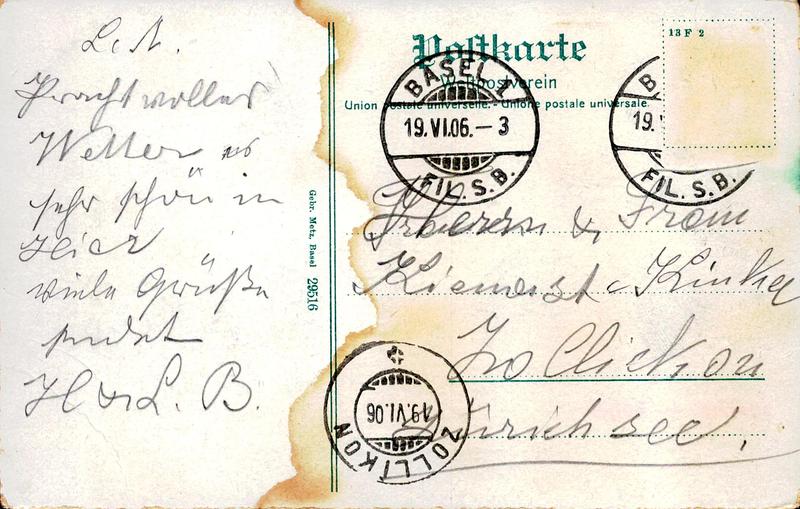 L. A.
Prachtvolles
Wetter es
sehr schön in
hier
viele Grüße
sendet
H & L. B.
Gebr. Metz, Basel 29516
Postkarte
Weltpostverein
Union postale universelle. - Unione postale universale.
13 F 2
BASEL 1
19.VI.06.-3
FIL.S.B.
B
19.
FIL.S.B.
Herrn & Frau
Kienast-Kinkel
Zollickon
Zürichsee,
ZOLLIKON
19.VI.06